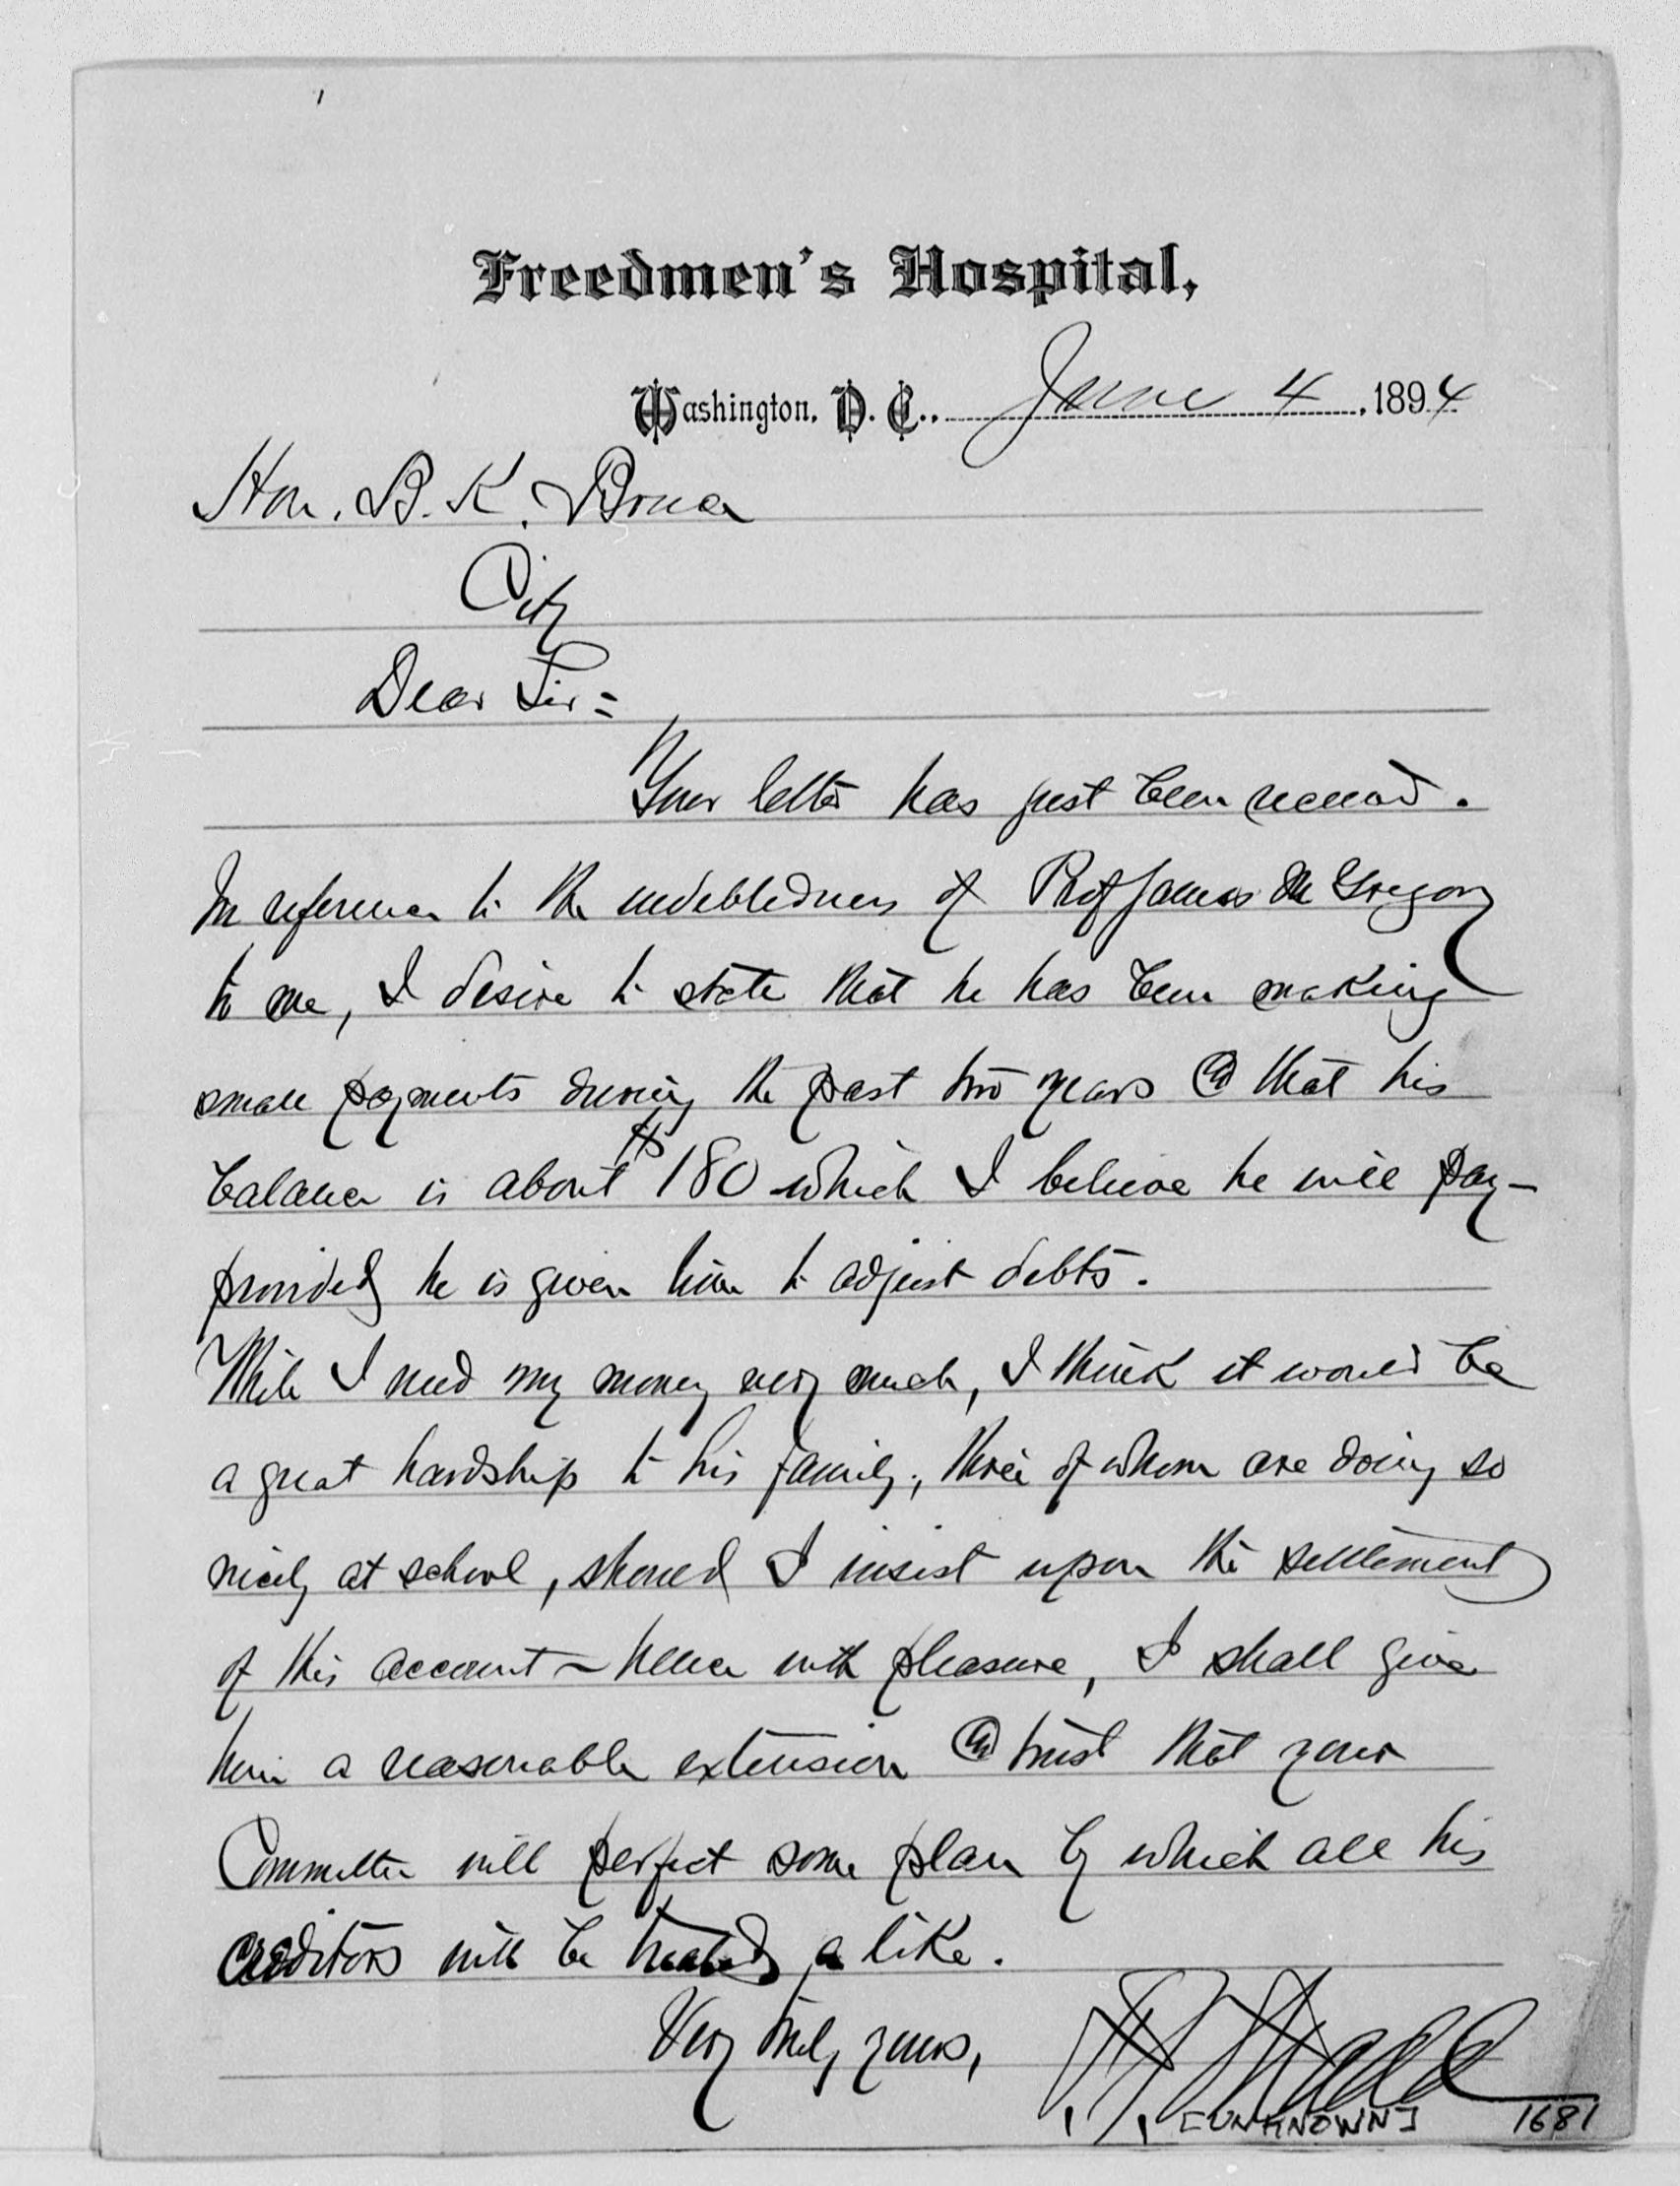 Freedmen's Hospital,
Washington, D. C., June 4, 1894
Hon. B. K. Bruce
City
Dear Sir =
Your letter has just been received.
In reference to the indebtedness of Prof James M Gregory
to me, I desire to state that he has been making
small payments during the past two years @ that his
balance is about $180 which I believe he will pay-
provided he is given time to adjust debts.
While I need my money very much, I think it would be
a great hardship to his family, three of whom are doing so
nicely at school, should I insist upon the settlement
of this account – hence with pleasure, I shall give
him a reasonable extension @ trust that your
Committee will perfect some plan by which all his
creditors will be treated a like.
Very truly yours,
[UNKNOWN] 1681